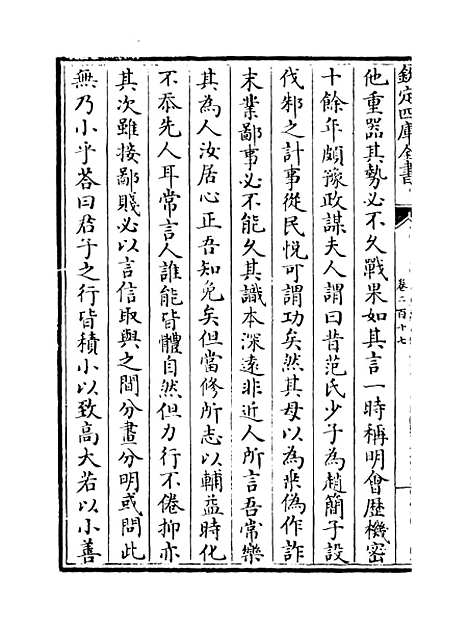 欽定四庫全書
卷二百十七
他重器其勢必不久戰果如其言一時稱明會歷機密
十餘年頗豫政謀夫人謂曰昔范氏少子為趙簡子設
伐邾之計事從民悅可謂功矣然其母以為乘偽作詐
末業鄙事必不能久其識本深遠非近人所言吾常樂
其為人汝居心正吾知免矣但當修所志以輔益時化
不忝先人耳常言人誰能皆體自然但力行不倦抑亦
其次雖接鄙賤必以言信取與之間分畫分明或問此
無乃小乎荅曰君子之行皆積小以致高大若以小善